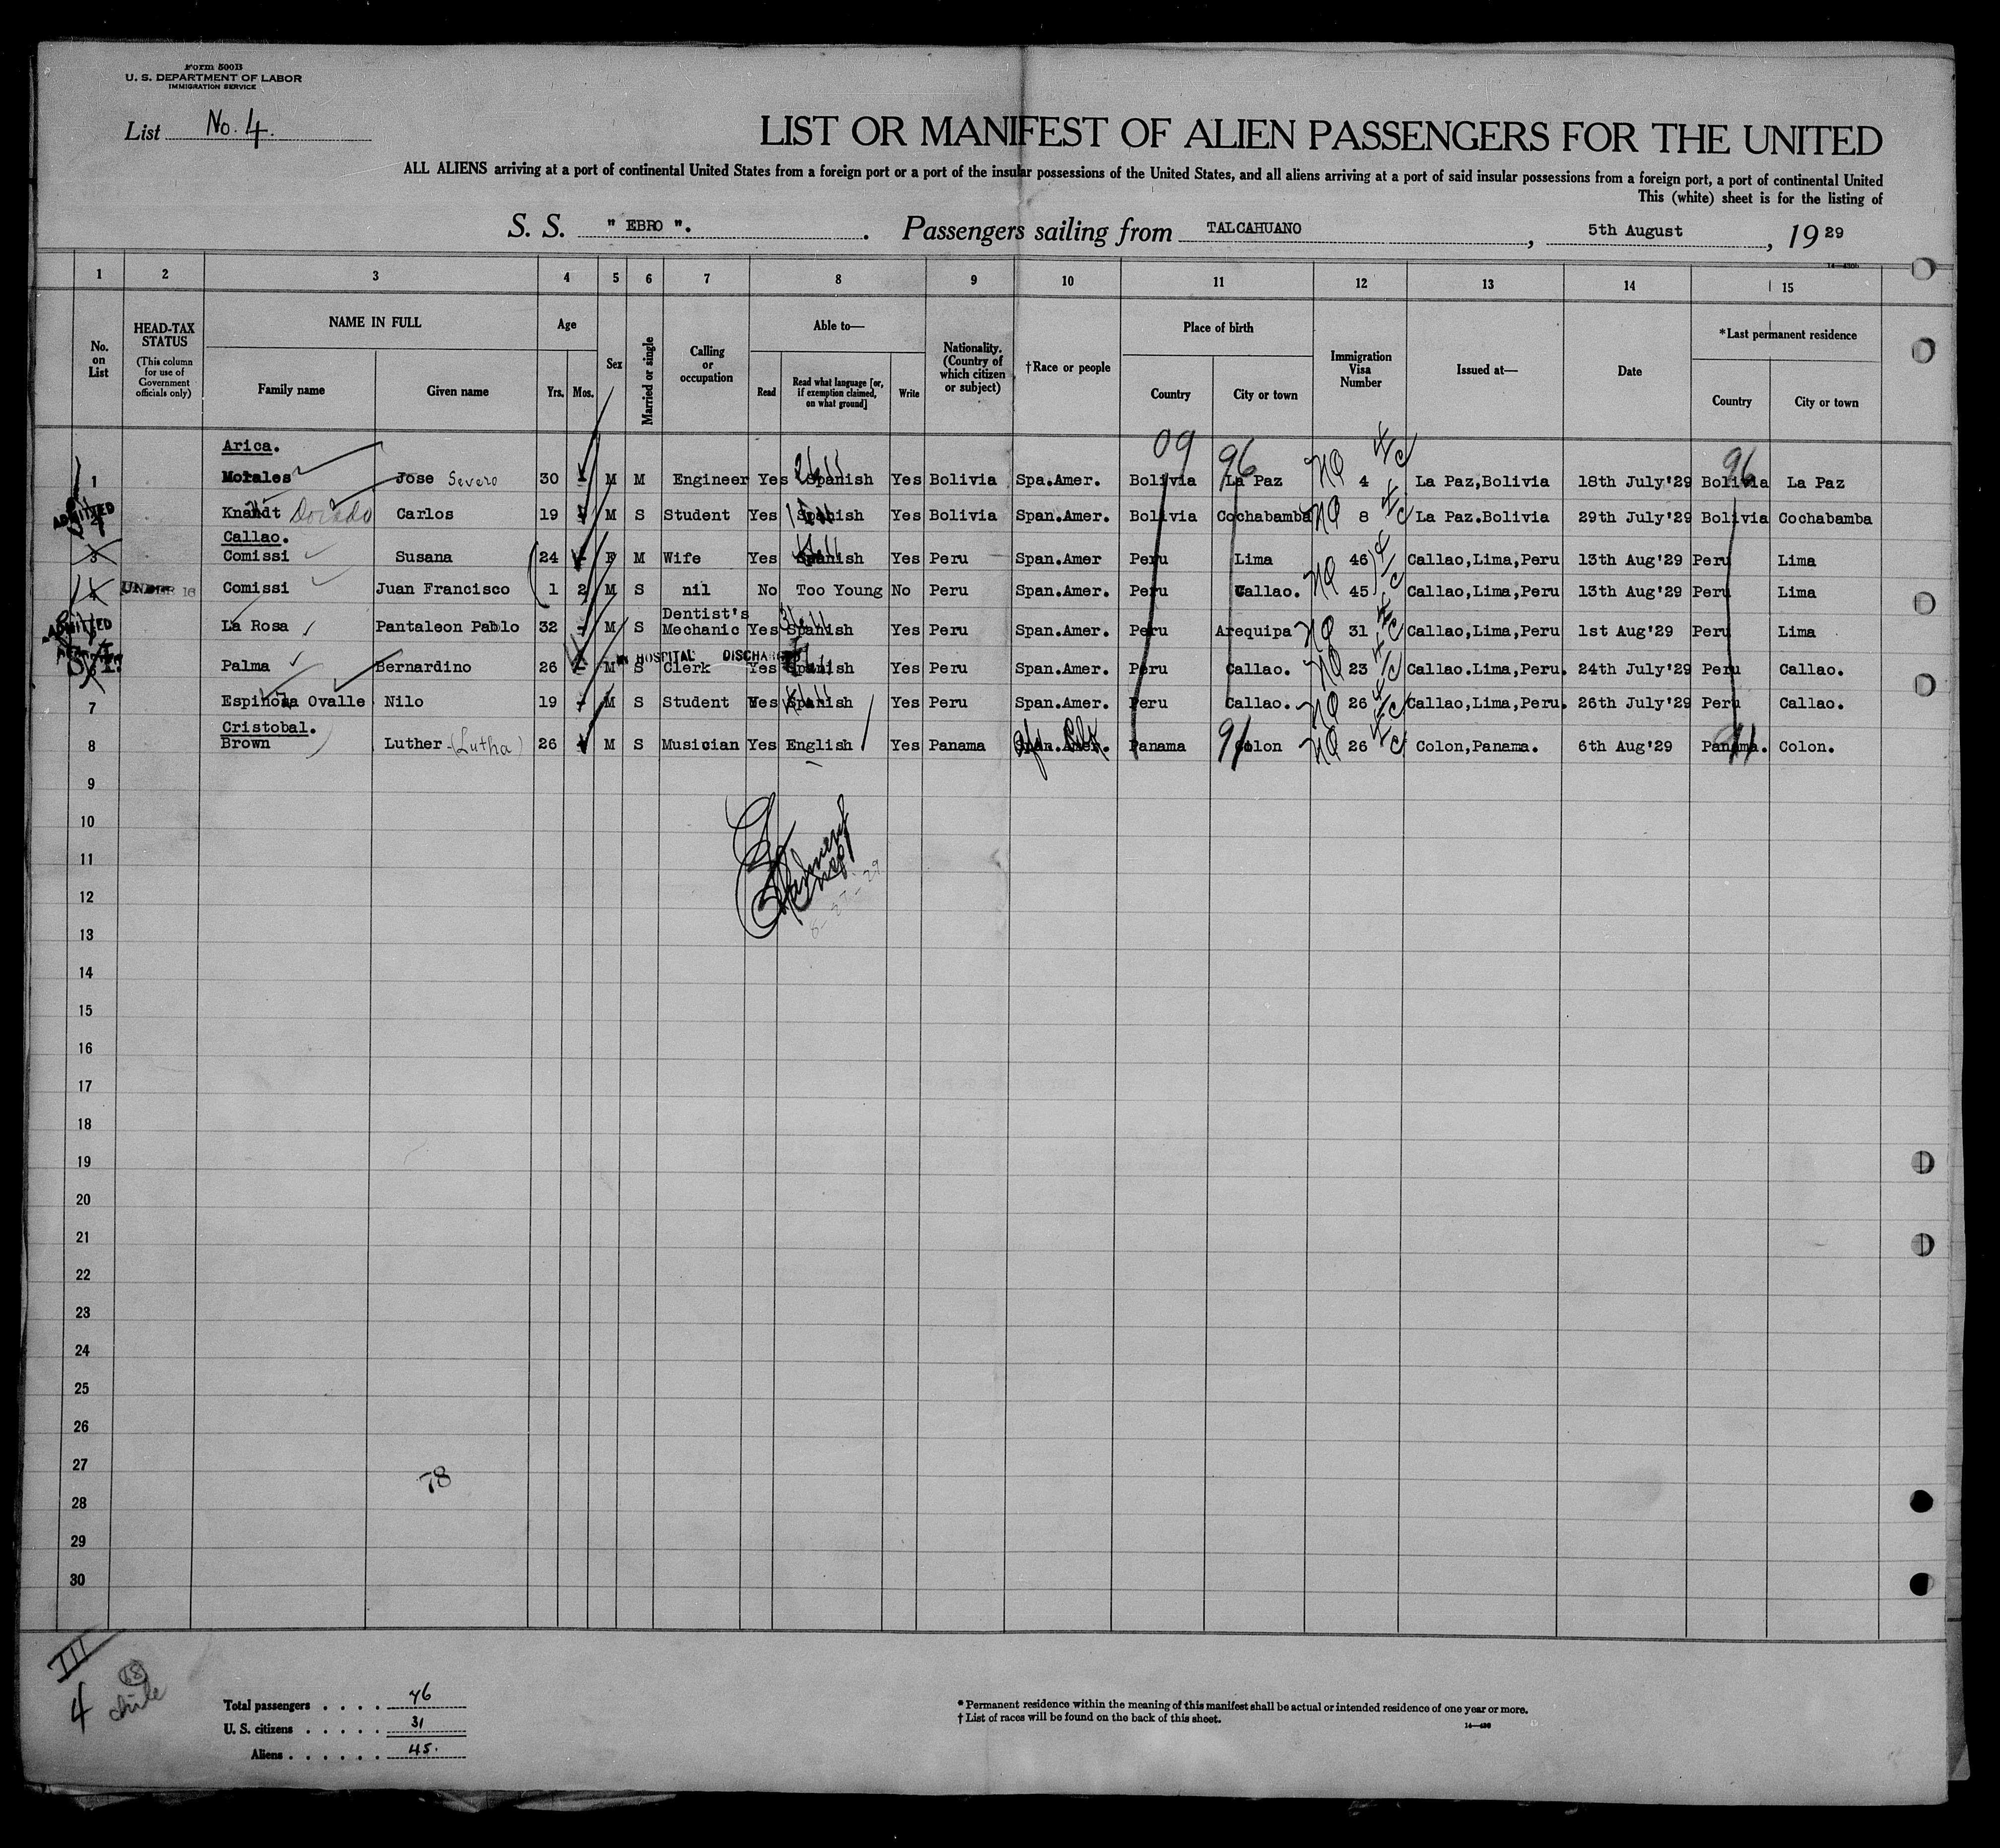 Form 500B
U. S. DEPARTMENT OF LABOR
IMMIGRATION SERVICE
List No. 4.
LIST OR MANIFEST OF ALIEN PASSENGERS FOR THE UNITED
ALL ALIENS arriving at a port of continental United States from a foreign port or a port of the insular possessions of the United States, and all aliens arriving at a port of said insular possessions from a foreign port, a port of continental United
This (white) sheet is for the listing of
S. S. " EBRO ". Passengers sailing from TALCAHUANO, 5th August, 19 29
1 2 3 4 5 6 7 8 9 10 11 12 13 14 15
No. on List
HEAD-TAX STATUS
(This column for use of Government officials only)
NAME IN FULL
Family name Given name
Age
Yrs. Mos.
Sex
Married or single
Calling or occupation
Able to—
Read
Read what language [or, if exemption claimed, on what ground]
Write
Nationality. (Country of which citizen or subject)
†Race or people
Place of birth
Country City or town
Immigration Visa Number
Issued at—
Date
*Last permanent residence
Country City or town
Arica. 09
1 Morales Jose Severo 30 - M M Engineer Yes Spanish Yes Bolivia Spa.Amer. Bolivia 96 La Paz NQ 4 La Paz,Bolivia 18th July'29 Bolivia 96 La Paz
ADMITTED 2 Knandt Dorado Carlos 19 M S Student Yes Spanish Yes Bolivia Span.Amer. Bolivia Cochabamba NQ 8 La Paz.Bolivia 29th July'29 Bolivia Cochabamba
Callao.
3 Comissi Susana 24 - F M Wife Yes Spanish Yes Peru Span.Amer Peru Lima 46 Callao,Lima,Peru 13th Aug'29 Peru Lima
4 UNDER 16 Comissi Juan Francisco 1 2 M S nil No Too Young No Peru Span.Amer. Peru Callao. NQ 45 Callao,Lima,Peru 13th Aug'29 Peru Lima
ADMITTED La Rosa Pantaleon Pablo 32 - M S Dentist's Mechanic Yes Spanish Yes Peru Span.Amer. Peru Arequipa NQ 31 Callao,Lima,Peru 1st Aug'29 Peru Lima
IN HOSPITAL DISCHARGED
Palma Bernardino 26 - M S Clerk Yes Spanish Yes Peru Span.Amer. Peru Callao. NQ 23 Callao.Lima,Peru. 24th July'29 Peru Callao.
7 Espinoza Ovalle Nilo 19 - M S Student Yes Spanish Yes Peru Span.Amer. Peru Callao. NQ 26 Callao,Lima,Peru. 26th July'29 Peru Callao.
Cristobal.
8 Brown Luther (Lutha) 26 M S Musician Yes English Yes Panama Span.Amer. Panama 91 Colon NQ 26 Colon,Panama. 6th Aug'29 Panama. 91 Colon.
9
10
11
12
8-27-29
13
14
15
16
17
18
19
20
21
22
23
24
25
26
27
78
28
29
30
III
4
18
chile
Total passengers . . . . 76
U. S. citizens . . . . . 31
Aliens . . . . . . 45.
* Permanent residence within the meaning of this manifest shall be actual or intended residence of one year or more.
† List of races will be found on the back of this sheet.